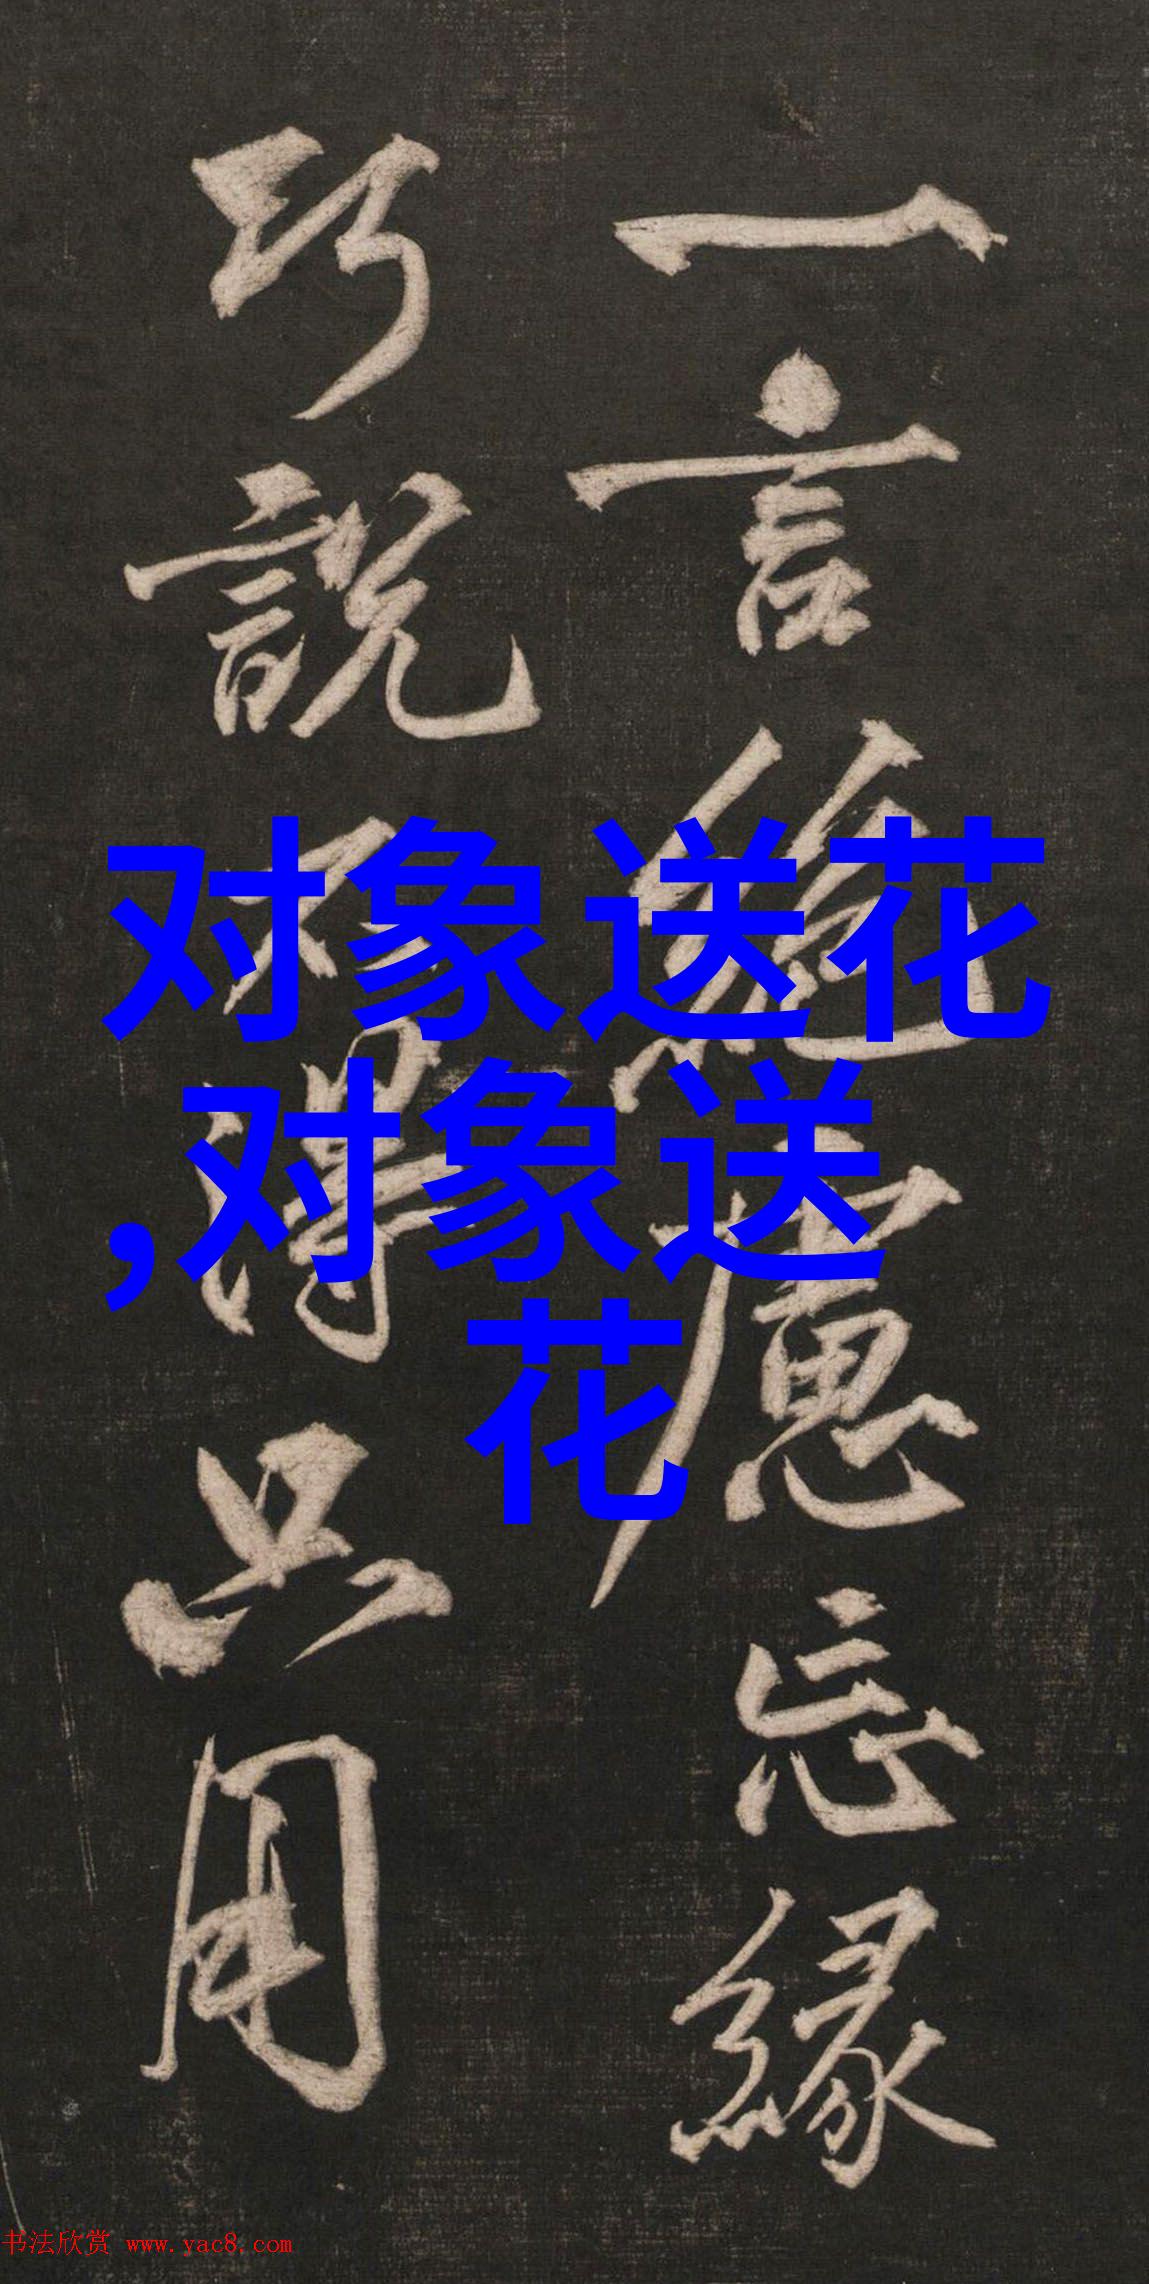 一言絶慮忘緣
巧説不得只用
对象送花
,对象送
花
书法欣赏 www.yac8.com